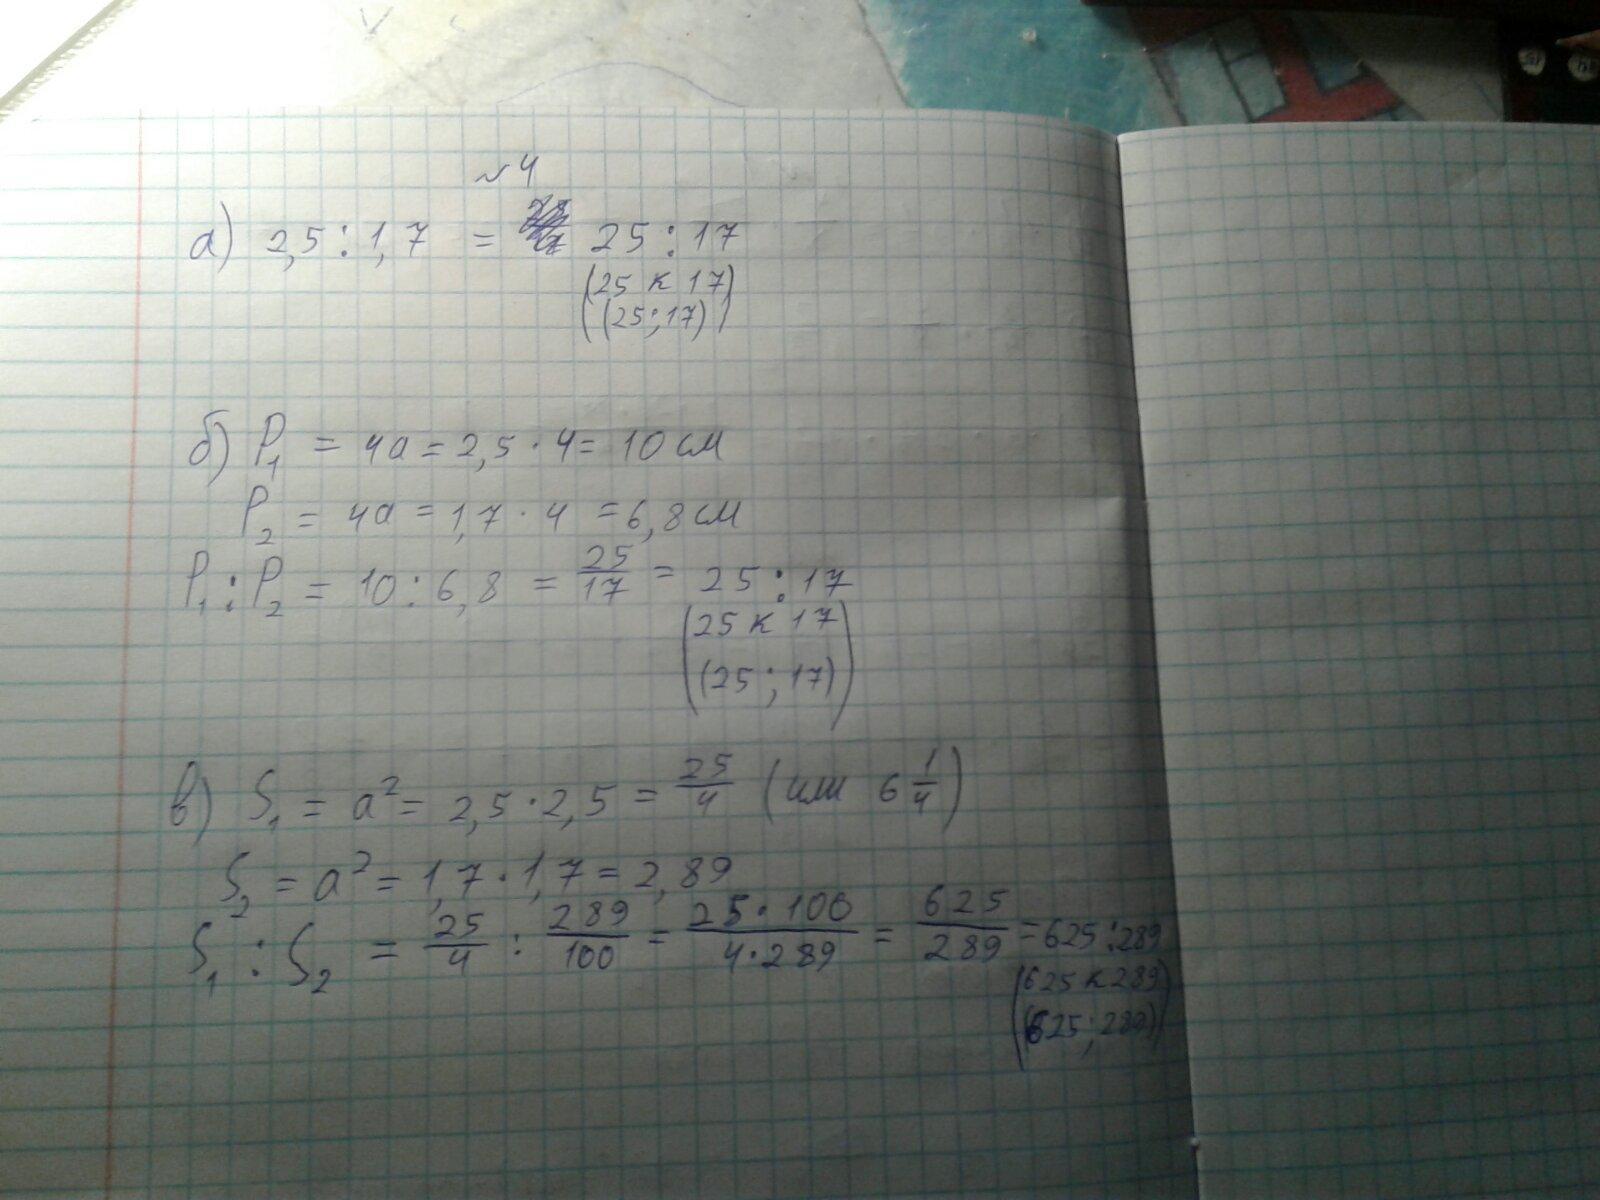 №4
а) 2,5 : 1,7 = 25 : 17
(25 к 17)
(25 ; 17)
б) P₁ = 4a = 2,5 · 4 = 10 см
P₂ = 4a = 1,7 · 4 = 6,8 см
P₁ : P₂ = 10 : 6,8 = 25/17 = 25 : 17
(25 к 17)
(25 ; 17)
в) S₁ = a² = 2,5 · 2,5 = 25/4 (или 6 1/4)
S₂ = a² = 1,7 · 1,7 = 2,89
S₁ : S₂ = 25/4 : 289/100 = 25 · 100/4 · 289 = 625/289 = 625 : 289
(625 к 289)
(625 ; 289)